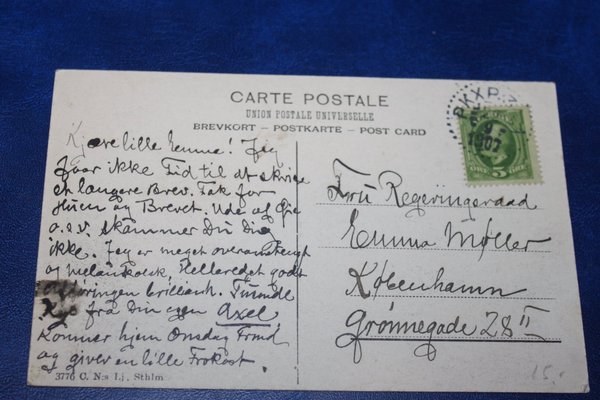 CARTE POSTALE
UNION POSTALE UNIVERSELLE
BREVKORT - POSTKARTE - POST CARD
Kjære lille Emma! Jeg
faar ikke Tid til at skrive
et længere Brev. Tak for
og Brevet. Ude af
o.s.v. skammer Du Dig
ikke. Jeg er meget overanstrengt
og melankolsk, godt
brilliant.
fra Din egen Axel
Kommer hjem Onsdag
og giver en lille Frokost.
3776 C. N:s Lj. Sthlm
PKXP
1907
5 ÖRE
Fru Regeringsraad
Emma Møller
København
Grønnegade 28 II
15,-